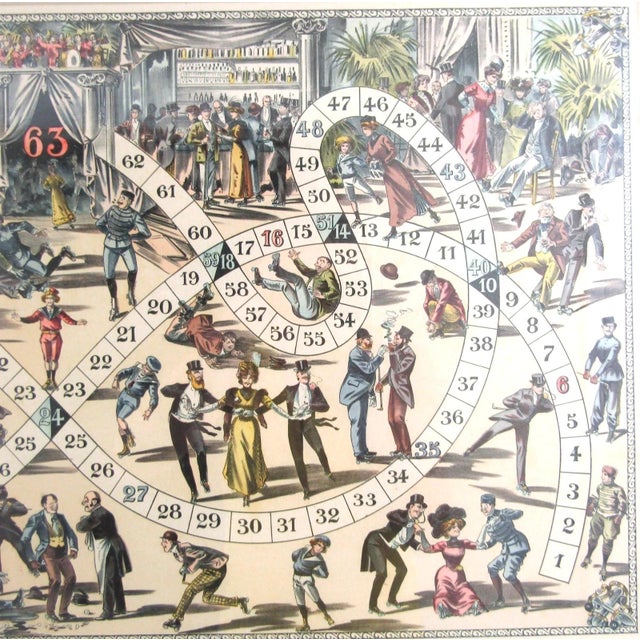 1
2
3
4
5
6
7
8
9
10
11
12
13
14
15
16
17
18
19
20
21
22
23
24
25
26
27
28
29
30
31
32
33
34
35
36
37
38
39
40
41
43
44
45
46
47
48
49
50
51
52
53
54
55
56
57
58
59
60
61
62
63
23
25
6